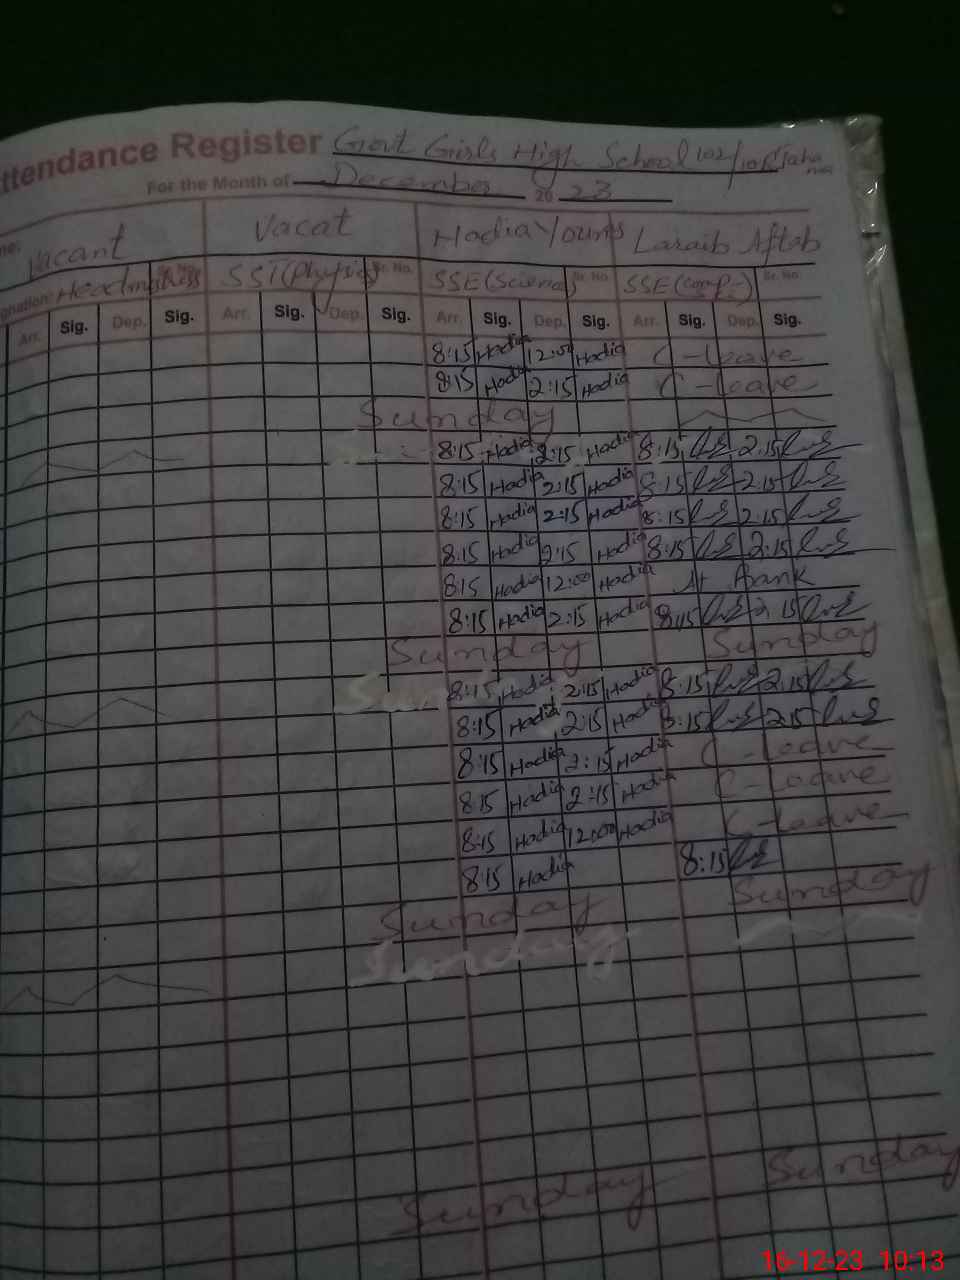 ttendance Register Govt Girls High School 102/10R Jaha
For the Month of December 20 23
me: Vacant Vacat Hadia Younis Laraib Aftab
gnation: SST(Physics) Sr. No. SSE(Science) Sr. No. SSE(comp:) Sr. No.
Arr. Sig. Dep. Sig. Arr. Sig. Dep. Sig. Arr. Sig. Dep. Sig. Arr. Sig. Dep. Sig.
8:15 Hadia 12:00 Hadia C-leave
8:15 Hadia 2:15 Hadia C-leave
Sunday
8:15 Hadia 2:15 Hadia 8:15 2:15
8:15 Hadia 2:15 Hadia 8:15 2:15
8:15 Hadia 2:15 Hadia 8:15 2:15
8:15 Hadia 2:15 Hadia 8:15 2:15
8:15 Hadia 12:00 Hadia At Bank
8:15 Hadia 2:15 Hadia 8:15 2:15
Sunday Sunday
8:15 Hadia 2:15 Hadia 8:15 2:15
8:15 Hadia 2:15 Hadia 8:15 2:15
8:15 Hadia 2:15 Hadia C-Leave
8:15 Hadia 2:15 Hadia C-Leave
8:15 Hadia 12:00 Hadia C-Leave
8:15 Hadia 8:15
Sunday Sunday
Sunday
Sunday Sunday
16-12-23 10:13